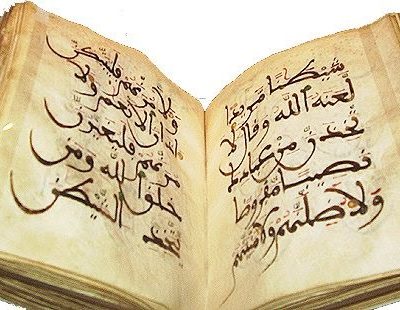 شيطنا مريدا
لعنه الله وقال لا
تخذن من عبادك
نصيبا مفروضا
ولا ضلنهم ولا منينهم
ولا مرنهم فليبتكن
اذان الانعم ولا
مرنهم فليغيرن
خلق الله ومن
يتخذ الشيطن